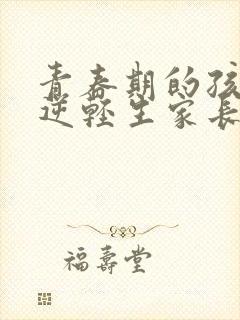 青春期的孩
逆轻生家长
福寿堂